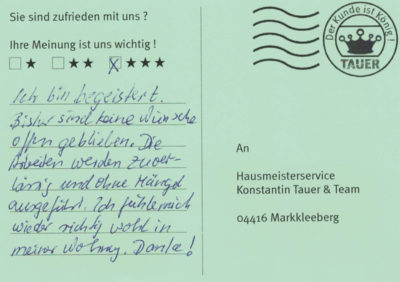 Sie sind zufrieden mit uns ?
Ihre Meinung ist uns wichtig !
Ich bin begeistert.
Bisher sind keine Wünsche
offen geblieben. Die
Arbeiten werden zuver-
lässig und ohne Mängel
ausgeführt. Ich fühle mich
wieder richtig wohl in
meiner Wohnung. Danke!
Der Kunde ist König !
TAUER
An
Hausmeisterservice
Konstantin Tauer & Team
04416 Markkleeberg